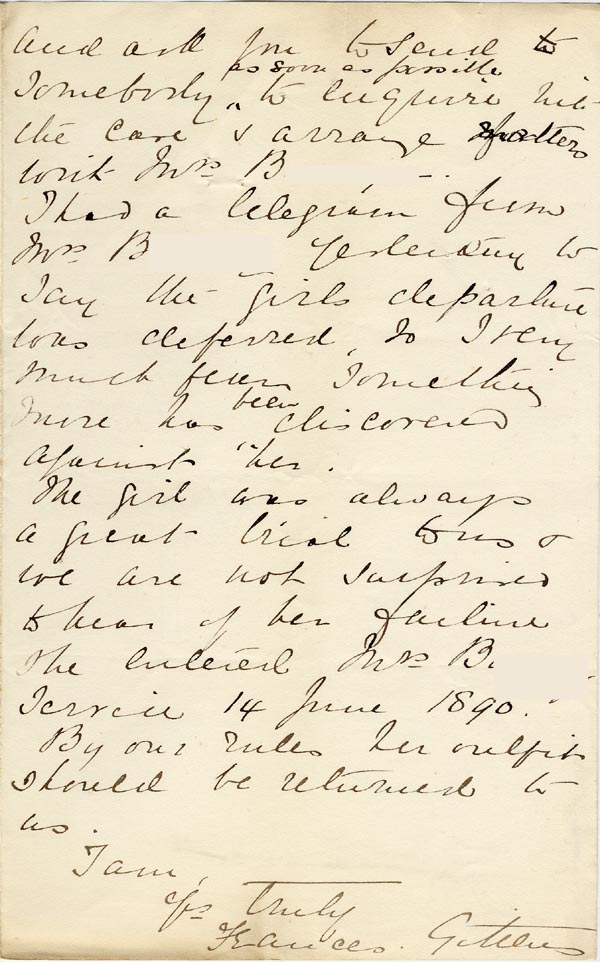 and ask you to send to
as soon as possible
Somebody, to enquire into
the case & arrange matters
with Mrs B
I had a telegram from
Mrs B yesterday to
say the girls departure
was deferred, so I very
much fear something
been
more has discovered
against her.
The girl was always
a great trial to us &
we are not surprised
to hear of her failure
She entered Mrs B.
Service 14 June 1890.
By our rules her outfit
should be returned to
us.
I am,
Yrs truly
Frances